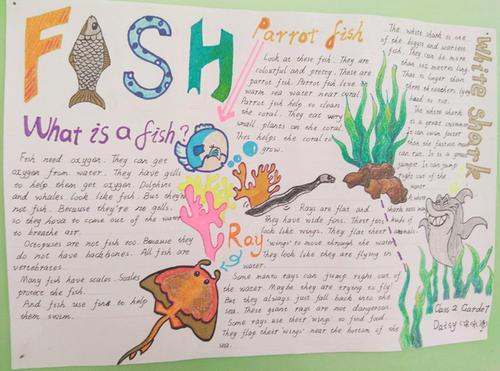 FISH
What is a fish?
Fish need oxygen. They can get
oxygen from water. They have gills
to help them get oxygen. Dolphins
and whales look like fish. But they
not fish. Because they're no gills.
so they have to come out of the water
to breathe air.
Octopuses are not fish too. Because they
do not have backbones. All fish are
vertebrates.
Many fish have scales. Scales
protect the fish.
And fish use fins to help
them swim.
Parrot fish
Look at these fish. They are
colourful and pretty. These are
parrot fish. Parrot fish live in
warm sea water near coral.
Parrot fish help to clean
the coral. They eat very
small plants on the coral.
This helps the coral to
grow.
Ray
Rays are flat and
they have wide fins. Their fins
look like wings. They flat their
'wings' to move through the water
They look like they are flying in
water.
Some manta rays can jump right out of
the water. Maybe they are trying to fly!
But they always just fall back into the
sea. These giant rays are not dangerous.
Some rays use their 'wings' to find food.
They flap their 'wings' near the bottom of the
sea.
White shark
The white shark is one
of the bigges and scariest
fish. They can be more
than six metres long
That is longer than
three
The white shark
is a great swimmer
It can swim faster
than the fastest man
can run. It is a
It can jump
right out of the
water.
Class 2 Garde 7
Daisy